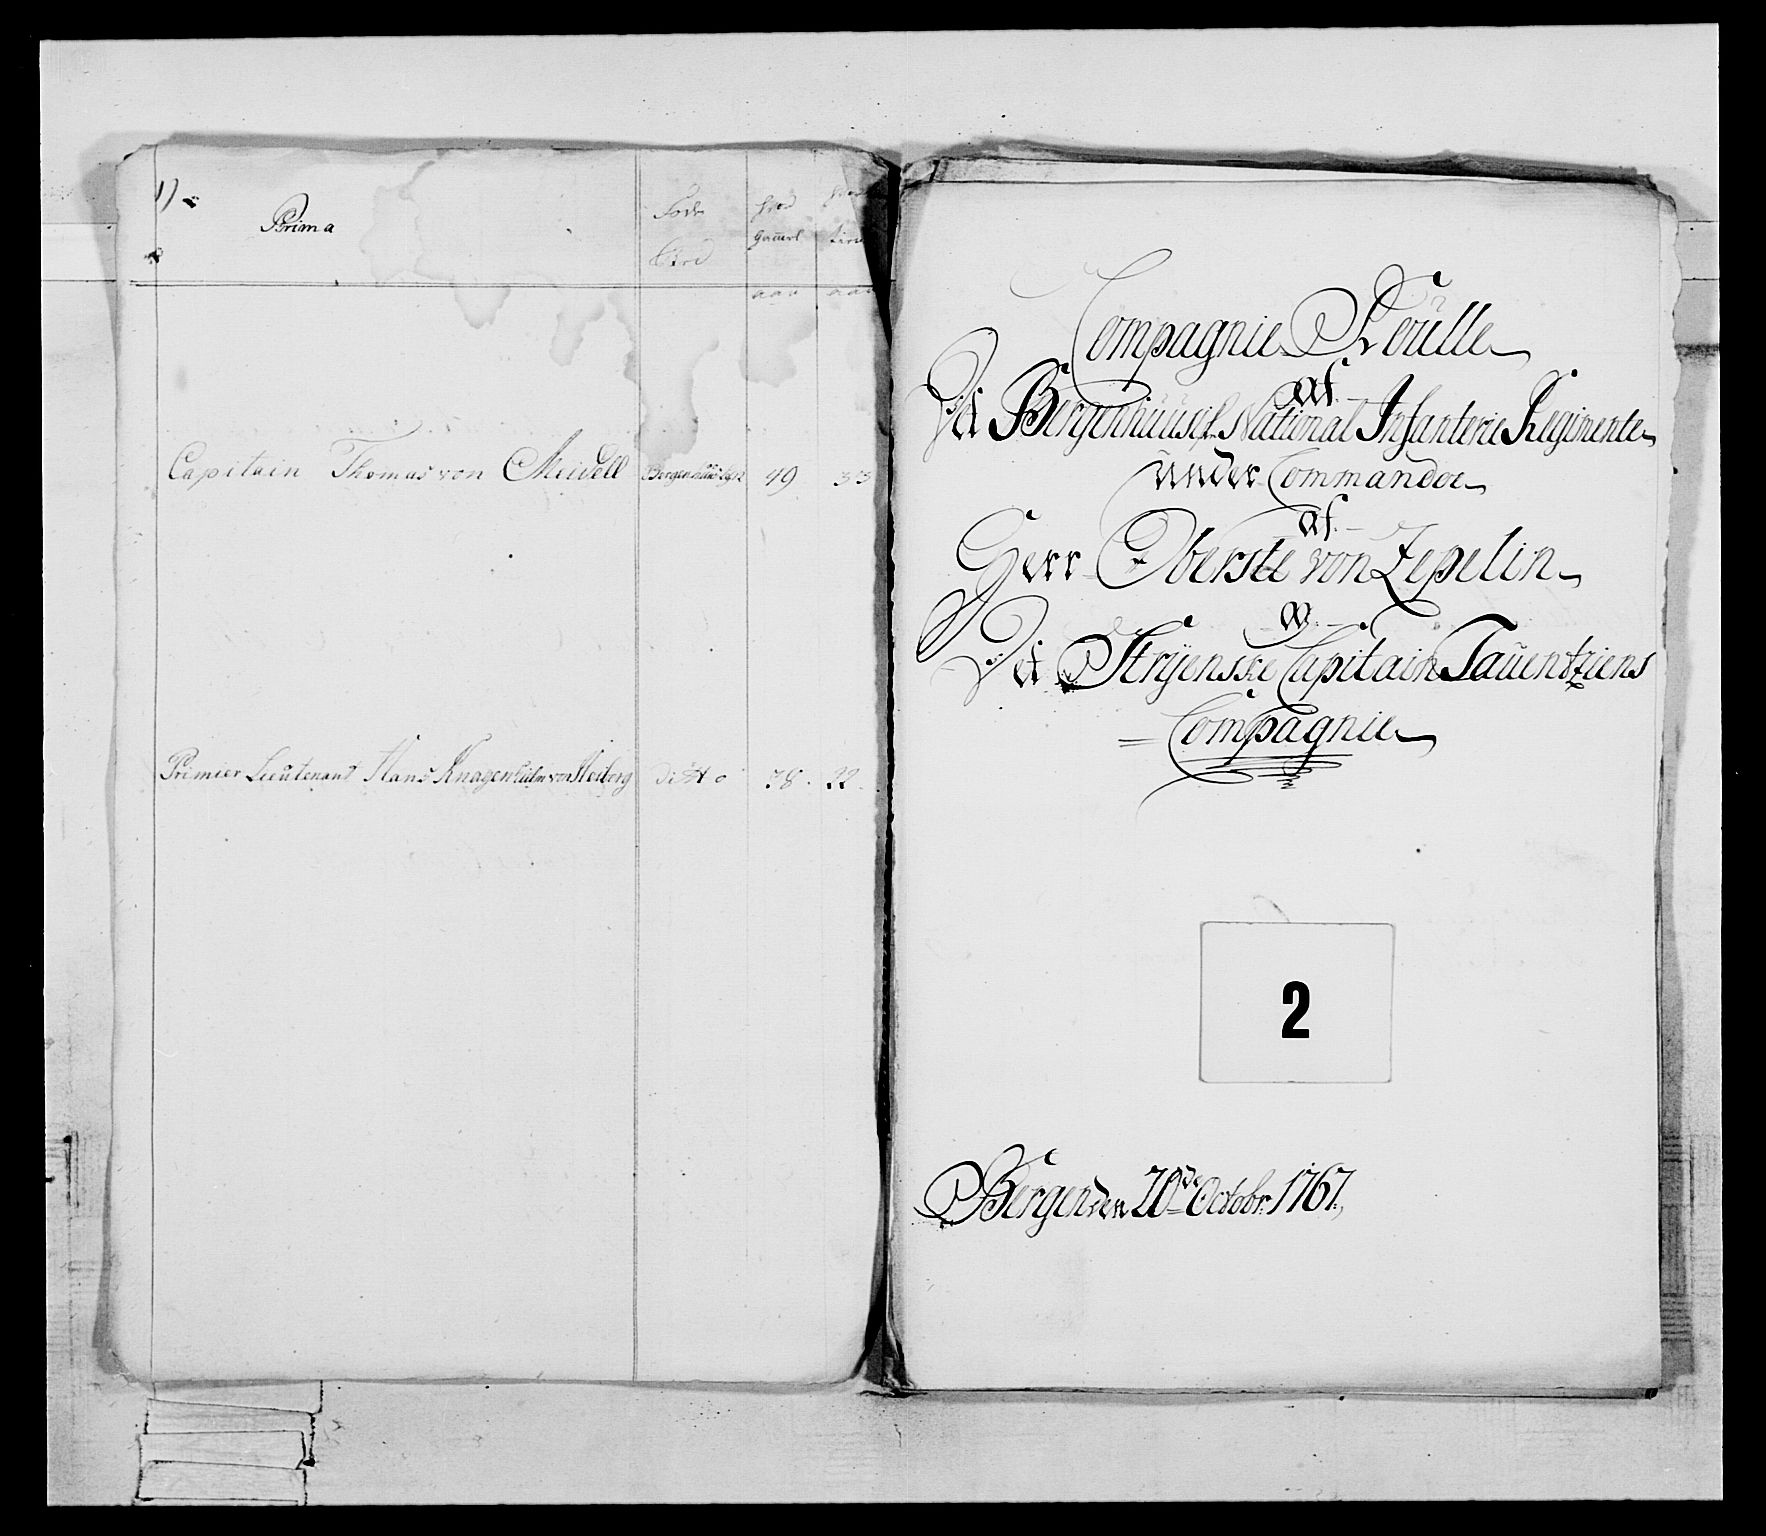 1)
Prima
Föde
Sted
hvor
Gamel
tient
aar
aar
Capitain Thomas von Meidell 49 33
Premier Lieutenant Hans Knagenhielm von Heiberg ditto 38. 22.
Compagnie Roülle
af.
Det Bergenhüusiske National Infanterie Regimente
ünder Commandoe
af.
Herr Oberste von Zepelin
og.
Det Stryenske Capitain Taüentziens
Compagnie
2
Bergen den 20de Octobr. 1767.